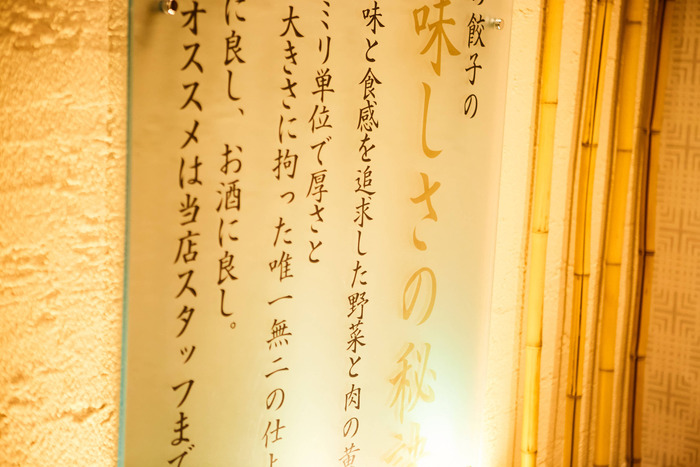 餃子の
味しさの秘
味と食感を追求した野菜と肉の黄
ミリ単位で厚さと
大きさに拘った唯一無二の仕上
に良し、お酒に良し。
オススメは当店スタッフまで